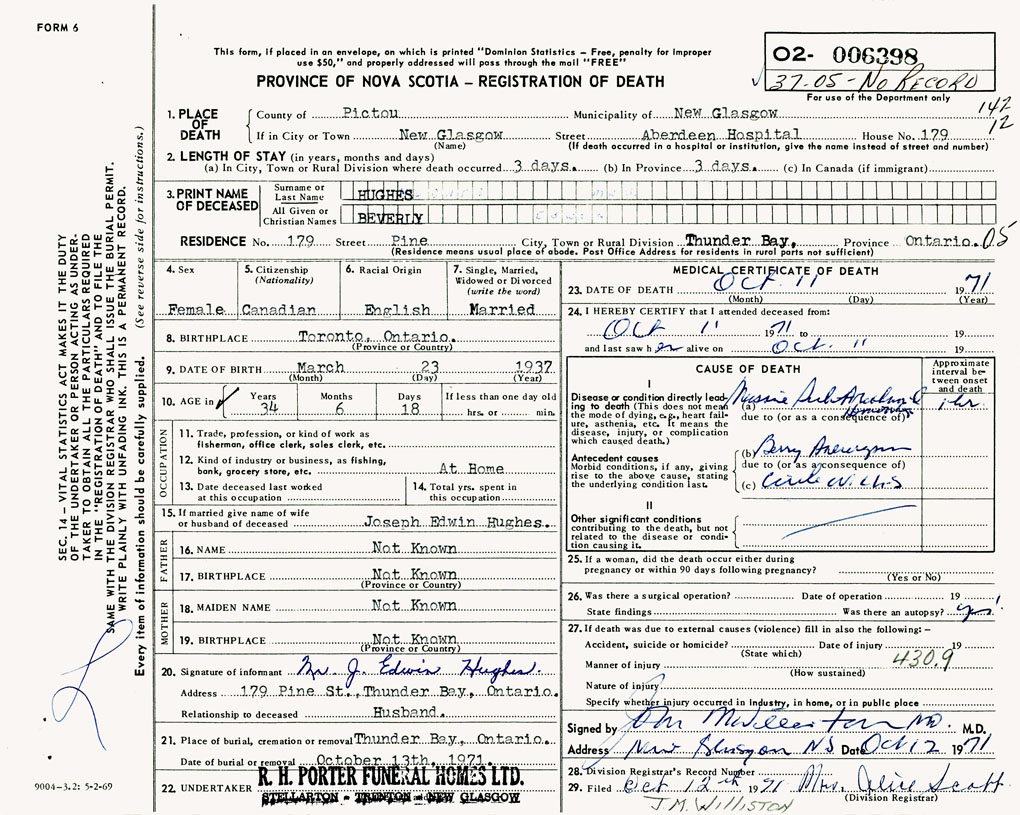 FORM 6
This form, if placed in an envelope, on which is printed "Dominion Statistics – Free, penalty for improper
use $50," and properly addressed will pass through the mail "FREE"
PROVINCE OF NOVA SCOTIA – REGISTRATION OF DEATH
02- 006398
37-05 - No RECORD
For use of the Department only
142
12
1. PLACE OF DEATH
County of Pictou Municipality of New Glasgow
If in City or Town New Glasgow Street Aberdeen Hospital House No. 179
(Name) (If death occurred in a hospital or institution, give the name instead of street and number)
2. LENGTH OF STAY (in years, months and days)
(a) In City, Town or Rural Division where death occurred 3 days. (b) In Province 3 days. (c) In Canada (if immigrant)
3. PRINT NAME OF DECEASED
Surname or Last Name HUGHES
All Given or Christian Names BEVERLY
RESIDENCE No. 179 Street Pine City, Town or Rural Division Thunder Bay, Province Ontario. 05
(Residence means usual place of abode. Post Office Address for residents in rural parts not sufficient)
4. Sex
Female
5. Citizenship (Nationality)
Canadian
6. Racial Origin
English
7. Single, Married, Widowed or Divorced (write the word)
Married
8. BIRTHPLACE Toronto, Ontario.
(Province or Country)
9. DATE OF BIRTH March 23 1937
(Month) (Day) (Year)
10. AGE in Years Months Days If less than one day old
34 6 18 hrs. or min.
OCCUPATION
11. Trade, profession, or kind of work as
fisherman, office clerk, sales clerk, etc.
12. Kind of industry or business, as fishing,
bank, grocery store, etc. At Home
13. Date deceased last worked
at this occupation
14. Total yrs. spent in
this occupation
15. If married give name of wife
or husband of deceased Joseph Edwin Hughes.
FATHER
16. NAME Not Known
17. BIRTHPLACE Not Known
(Province or Country)
MOTHER
18. MAIDEN NAME Not Known
19. BIRTHPLACE Not Known
(Province or Country)
20. Signature of informant Mr. J. Edwin Hughes.
Address 179 Pine St., Thunder Bay, Ontario.
Relationship to deceased Husband.
21. Place of burial, cremation or removal Thunder Bay, Ontario.
Date of burial or removal October 13th, 1971.
22. UNDERTAKER R. H. PORTER FUNERAL HOMES LTD.
STELLARTON - TRENTON - NEW GLASGOW
MEDICAL CERTIFICATE OF DEATH
23. DATE OF DEATH Oct. 11 1971
(Month) (Day) (Year)
24. I HEREBY CERTIFY that I attended deceased from:
Oct 11 1971 to 19
and last saw her alive on Oct. 11 19
CAUSE OF DEATH
Approximate interval between onset and death
I
Disease or condition directly leading to death (This does not mean the mode of dying, e.g., heart failure, asthenia, etc. It means the disease, injury, or complication which caused death.)
(a) Massive Sub Arachnoid Hemorrhage 1 hr
due to (or as a consequence of)
Antecedent causes
Morbid conditions, if any, giving rise to the above cause, stating the underlying condition last.
(b) Berry Aneurysm
due to (or as a consequence of)
(c) Circle Willis
II
Other significant conditions
contributing to the death, but not related to the disease or condition causing it.
25. If a woman, did the death occur either during
pregnancy or within 90 days following pregnancy?
(Yes or No)
26. Was there a surgical operation? Date of operation 19
State findings Was there an autopsy? yes!
27. If death was due to external causes (violence) fill in also the following: –
Accident, suicide or homicide? Date of injury 19
(State which) 430.9
Manner of injury
(How sustained)
Nature of injury
Specify whether injury occurred in industry, in home, or in public place
Signed by M.D. M.D.
Address New Glasgow NS Date Oct 12 1971
28. Division Registrar's Record Number
29. Filed Oct 12 1971 Mrs. Alice Scott
(Division Registrar)
J.M. WILLISTON
SEC. 14 – VITAL STATISTICS ACT MAKES IT THE DUTY
OF THE UNDERTAKER OR PERSON ACTING AS UNDER-
TAKER TO OBTAIN ALL THE PARTICULARS REQUIRED
IN THE "REGISTRATION OF DEATH" AND TO FILE THE
SAME WITH THE DIVISION REGISTRAR WHO SHALL ISSUE THE BURIAL PERMIT.
WRITE PLAINLY WITH UNFADING INK. THIS IS A PERMANENT RECORD.
Every item of information should be carefully supplied. (See reverse side for instructions.)
9004-3.2: 5-2-69